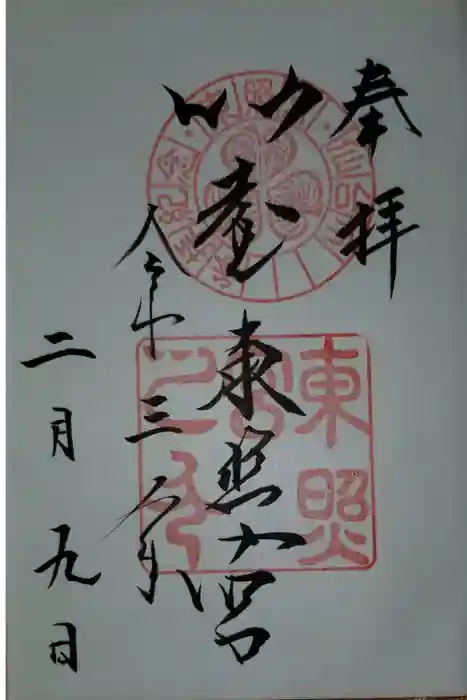 奉拝
仙臺東照宮
令和三年
二月九日
東照宮之印